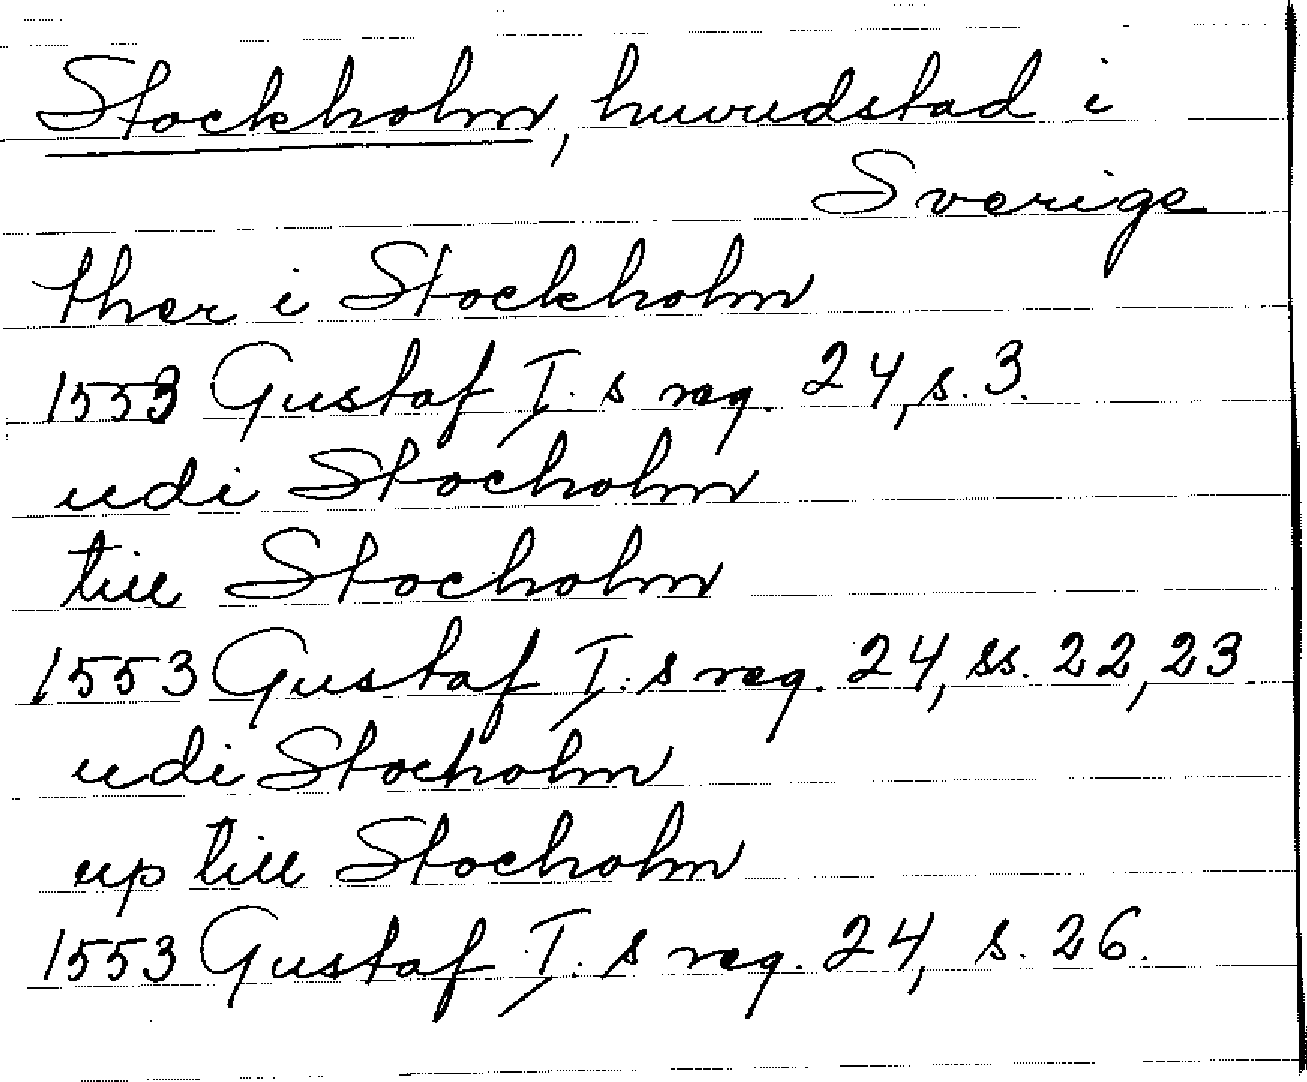 Stockholm, huvudstad i
Sverige
ther i Stockholm
1553 Gustaf I. s reg. 24, s. 3.
udi Stocholm
till Stocholm
1553 Gustaf I: s reg. 24, ss. 22, 23
udi Stocholm
up till Stocholm
1553 Gustaf I. s reg. 24, s. 26.